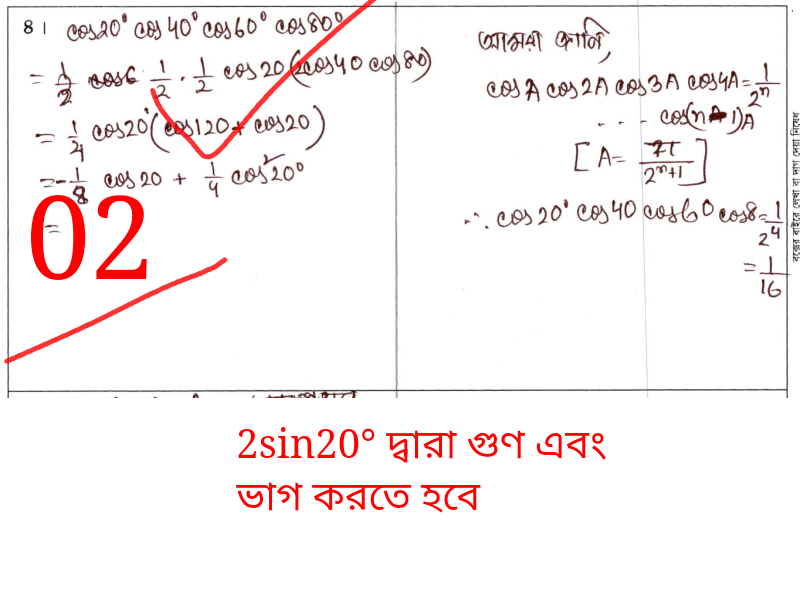 8। cos20° cos40° cos60° cos80°
= 1/2 · 1/2 cos20 (2cos40 cos80)
= 1/4 cos20° (cos120 + cos20)
= -1/8 cos20 + 1/4 cos²20°
=
02
আমরা জানি,
cosA cos2A cos3A cos4A = 1/2ⁿ
... cos(n-1)A
[A = π/(2ⁿ+1)]
∴ cos20° cos40 cos60 cos8 = 1/2⁴
= 1/16
বক্সের বাইরে লেখা বা দাগ দেয়া নিষেধ
2sin20° দ্বারা গুণ এবং
ভাগ করতে হবে